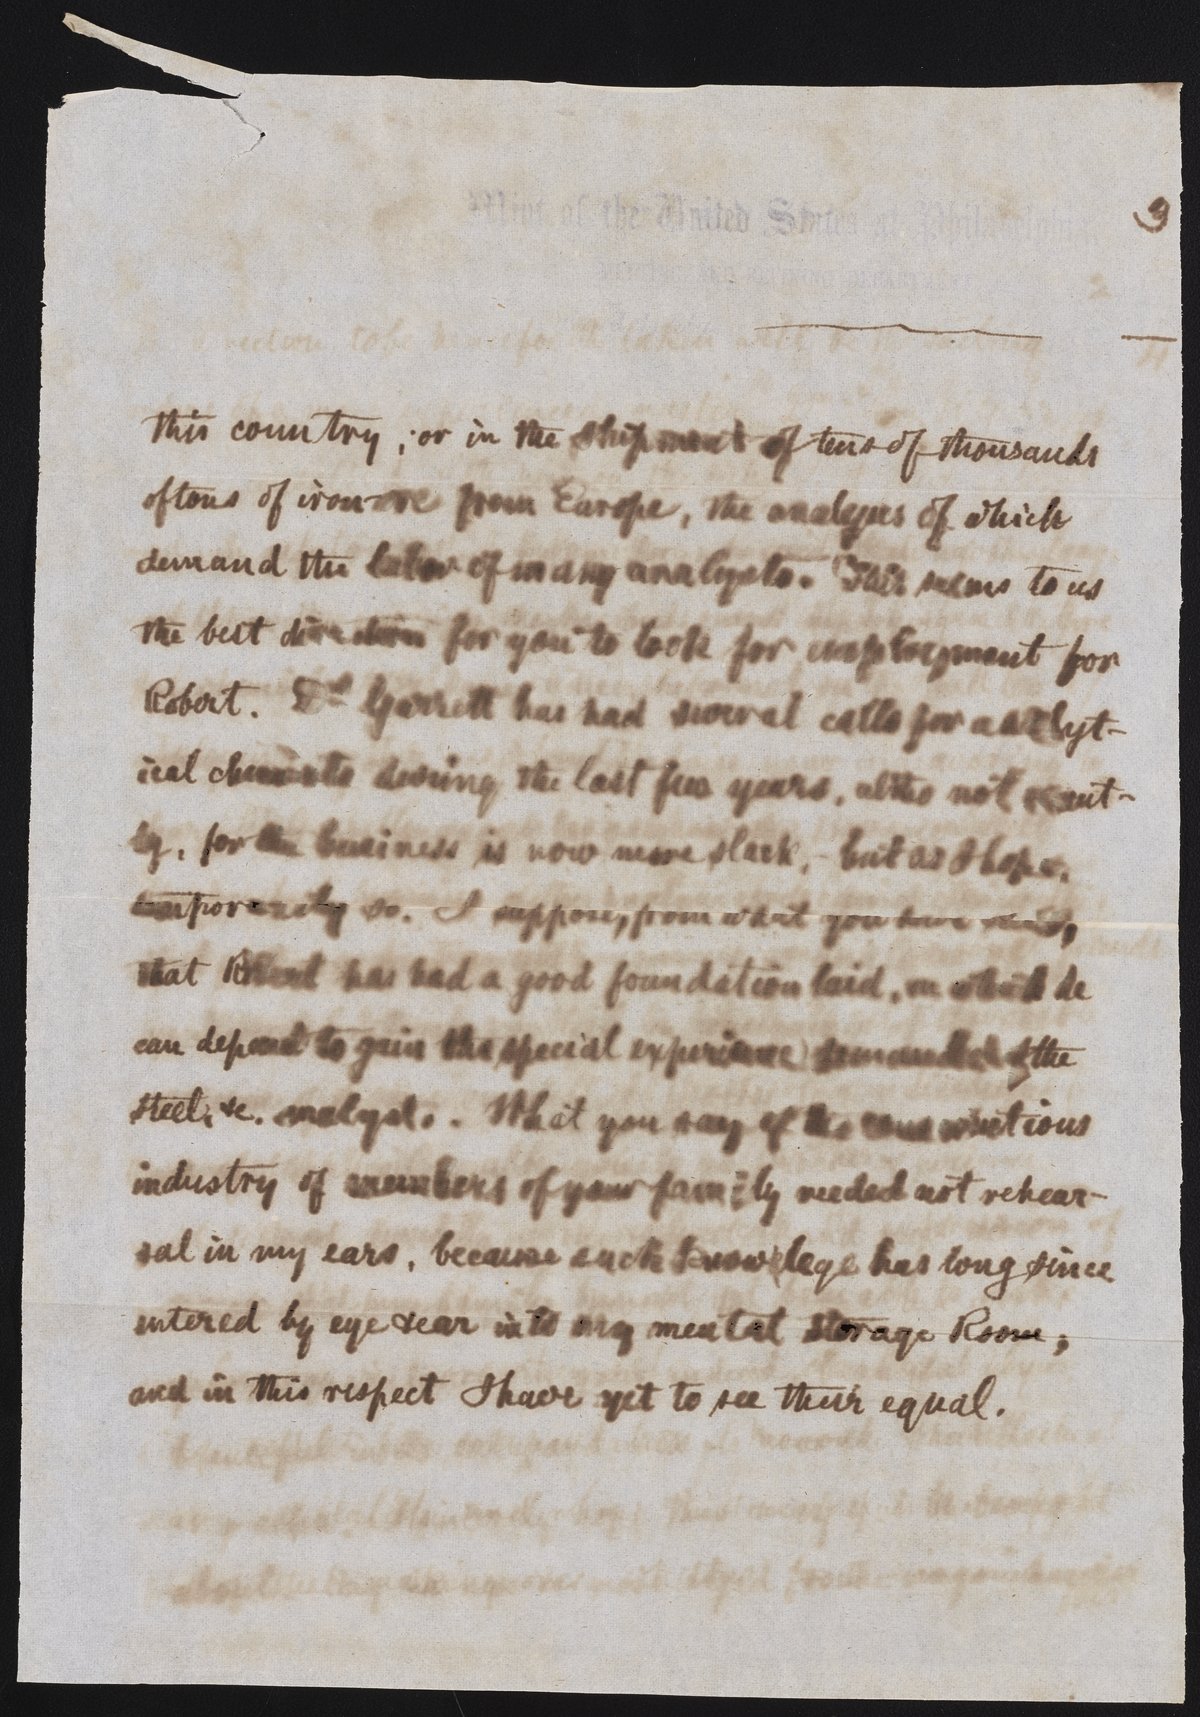 Mint of the United States at Philadelphia
3
this country, or in the shipment of tens of thousands
of tons of iron-ore from Europe, the analyses of which
demand the labor of many analysts. This seems to us
the best direction for you to look for employment for
Robert. Dr. Garrett has had several calls for analyt-
ical chemists during the last few years, altho not recent-
ly, for the business is now more slack, - but as I hope,
temporarily so. I suppose, from what you have said,
that Robert has had a good foundation laid, on which he
can depend to gain the special experience demanded of the
steel, &c. analysts. What you say of the conscientious
industry of members of your family needed not rehear-
sal in my ears, because such knowledge has long since
entered by eye & ear into my mental storage Room;
and in this respect I have yet to see their equal.